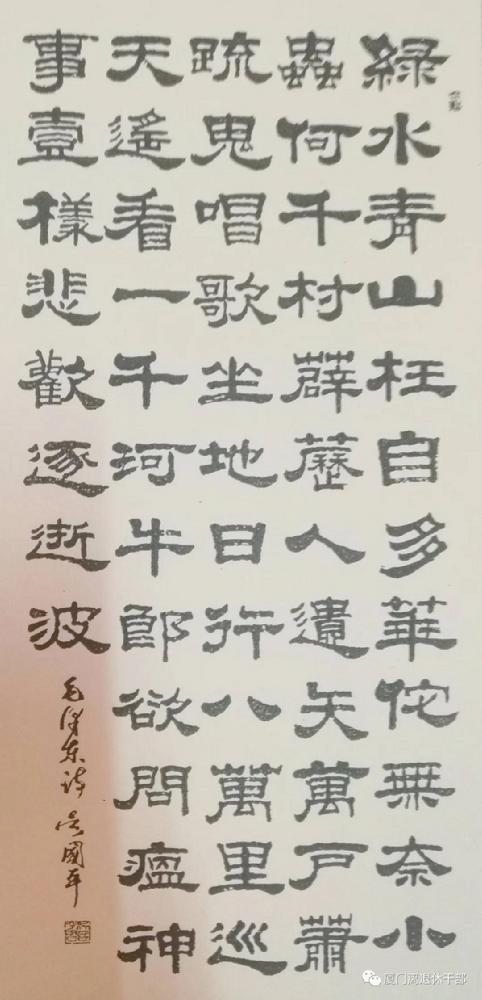 綠水青山枉自多華佗無奈小
蟲何千村薜藶人遺矢萬戶蕭
疏鬼唱歌坐地日行八萬里巡
天遙看一千珂牛郎欲問瘟神
事壹樣悲歡逐逝波
毛澤東詩 吳國平
厦门离退休干部